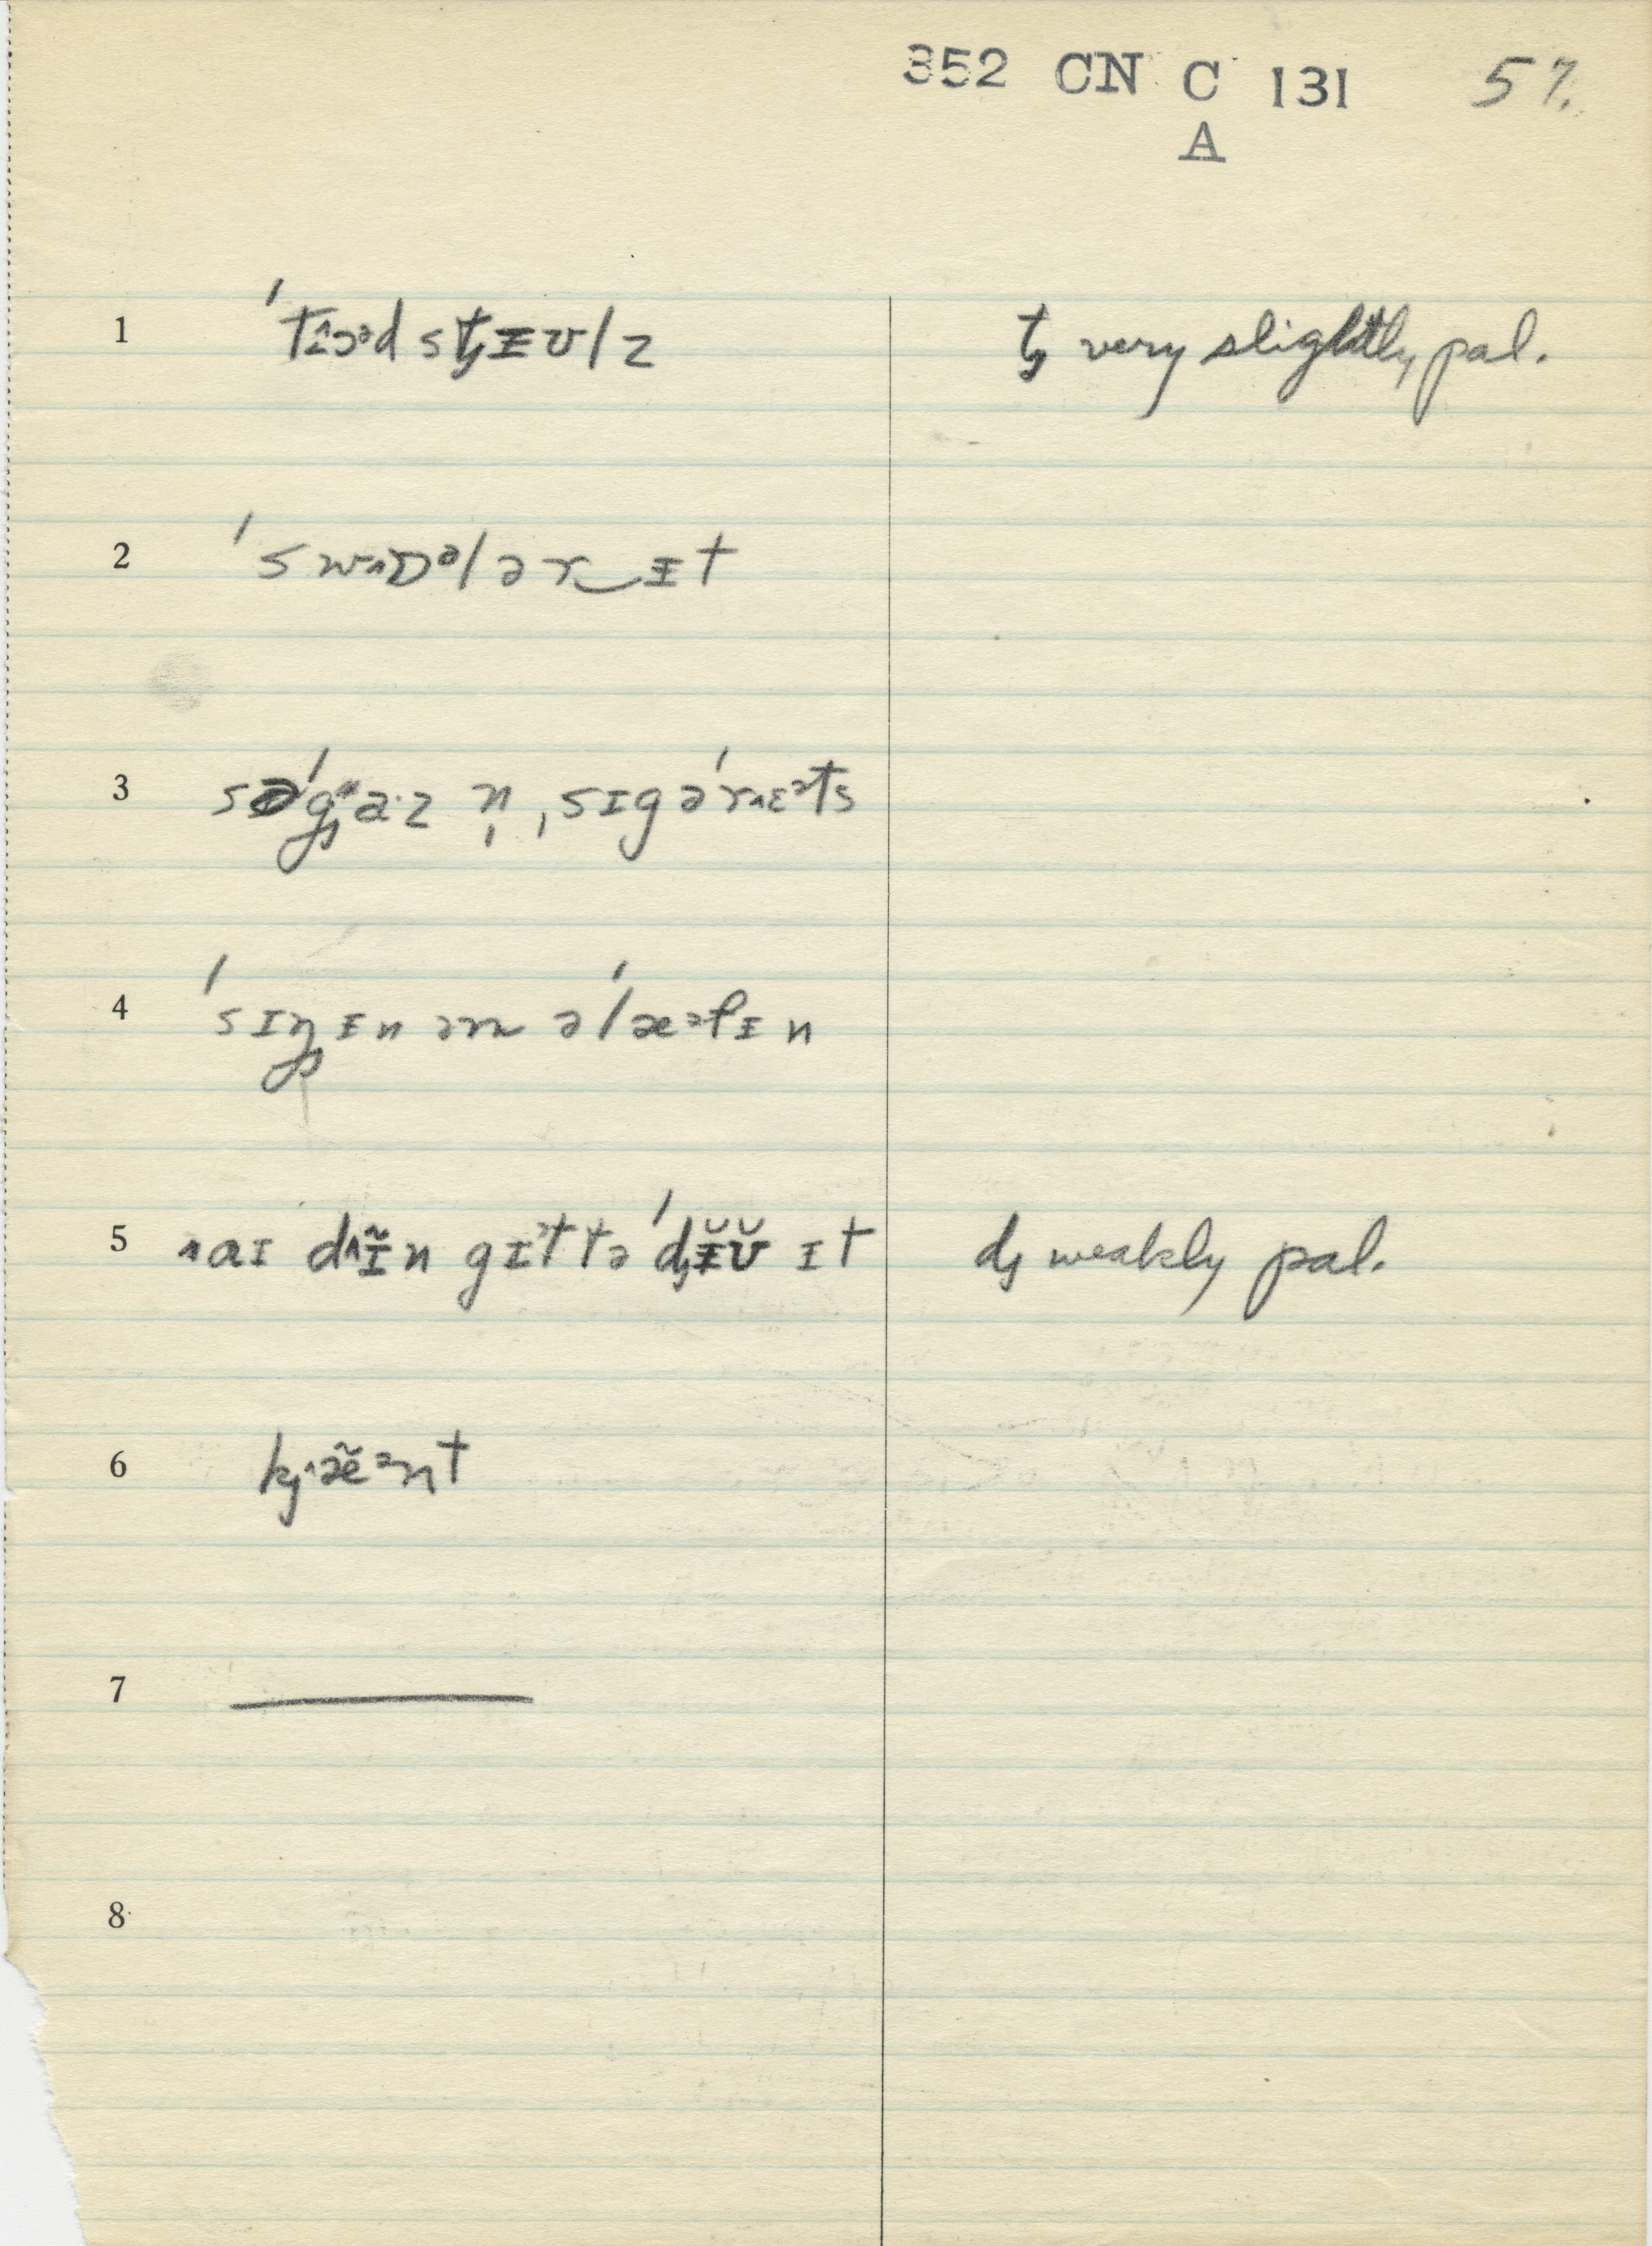 352 CN C 131 57.
A
1 ˈtɪ^ɔᵊd stᶨᵻʊlz tᶨ very slightly pal.
2 ˈswɒᵊlər‿ᵻt
3 səˈgᶨaˑz n̩ ˌsɪgəˈrɛᵊts
4 ˈsɪŋᶨᵻn əm əˈlæᵊfᵻn
5 aɪ dɪ̃n gɪᵊt tə ˈdᶨᵻ̆ʊ̆ ɪt dᶨ weakly pal.
6 kᶨæ̃ᵊnt
7 ―
8